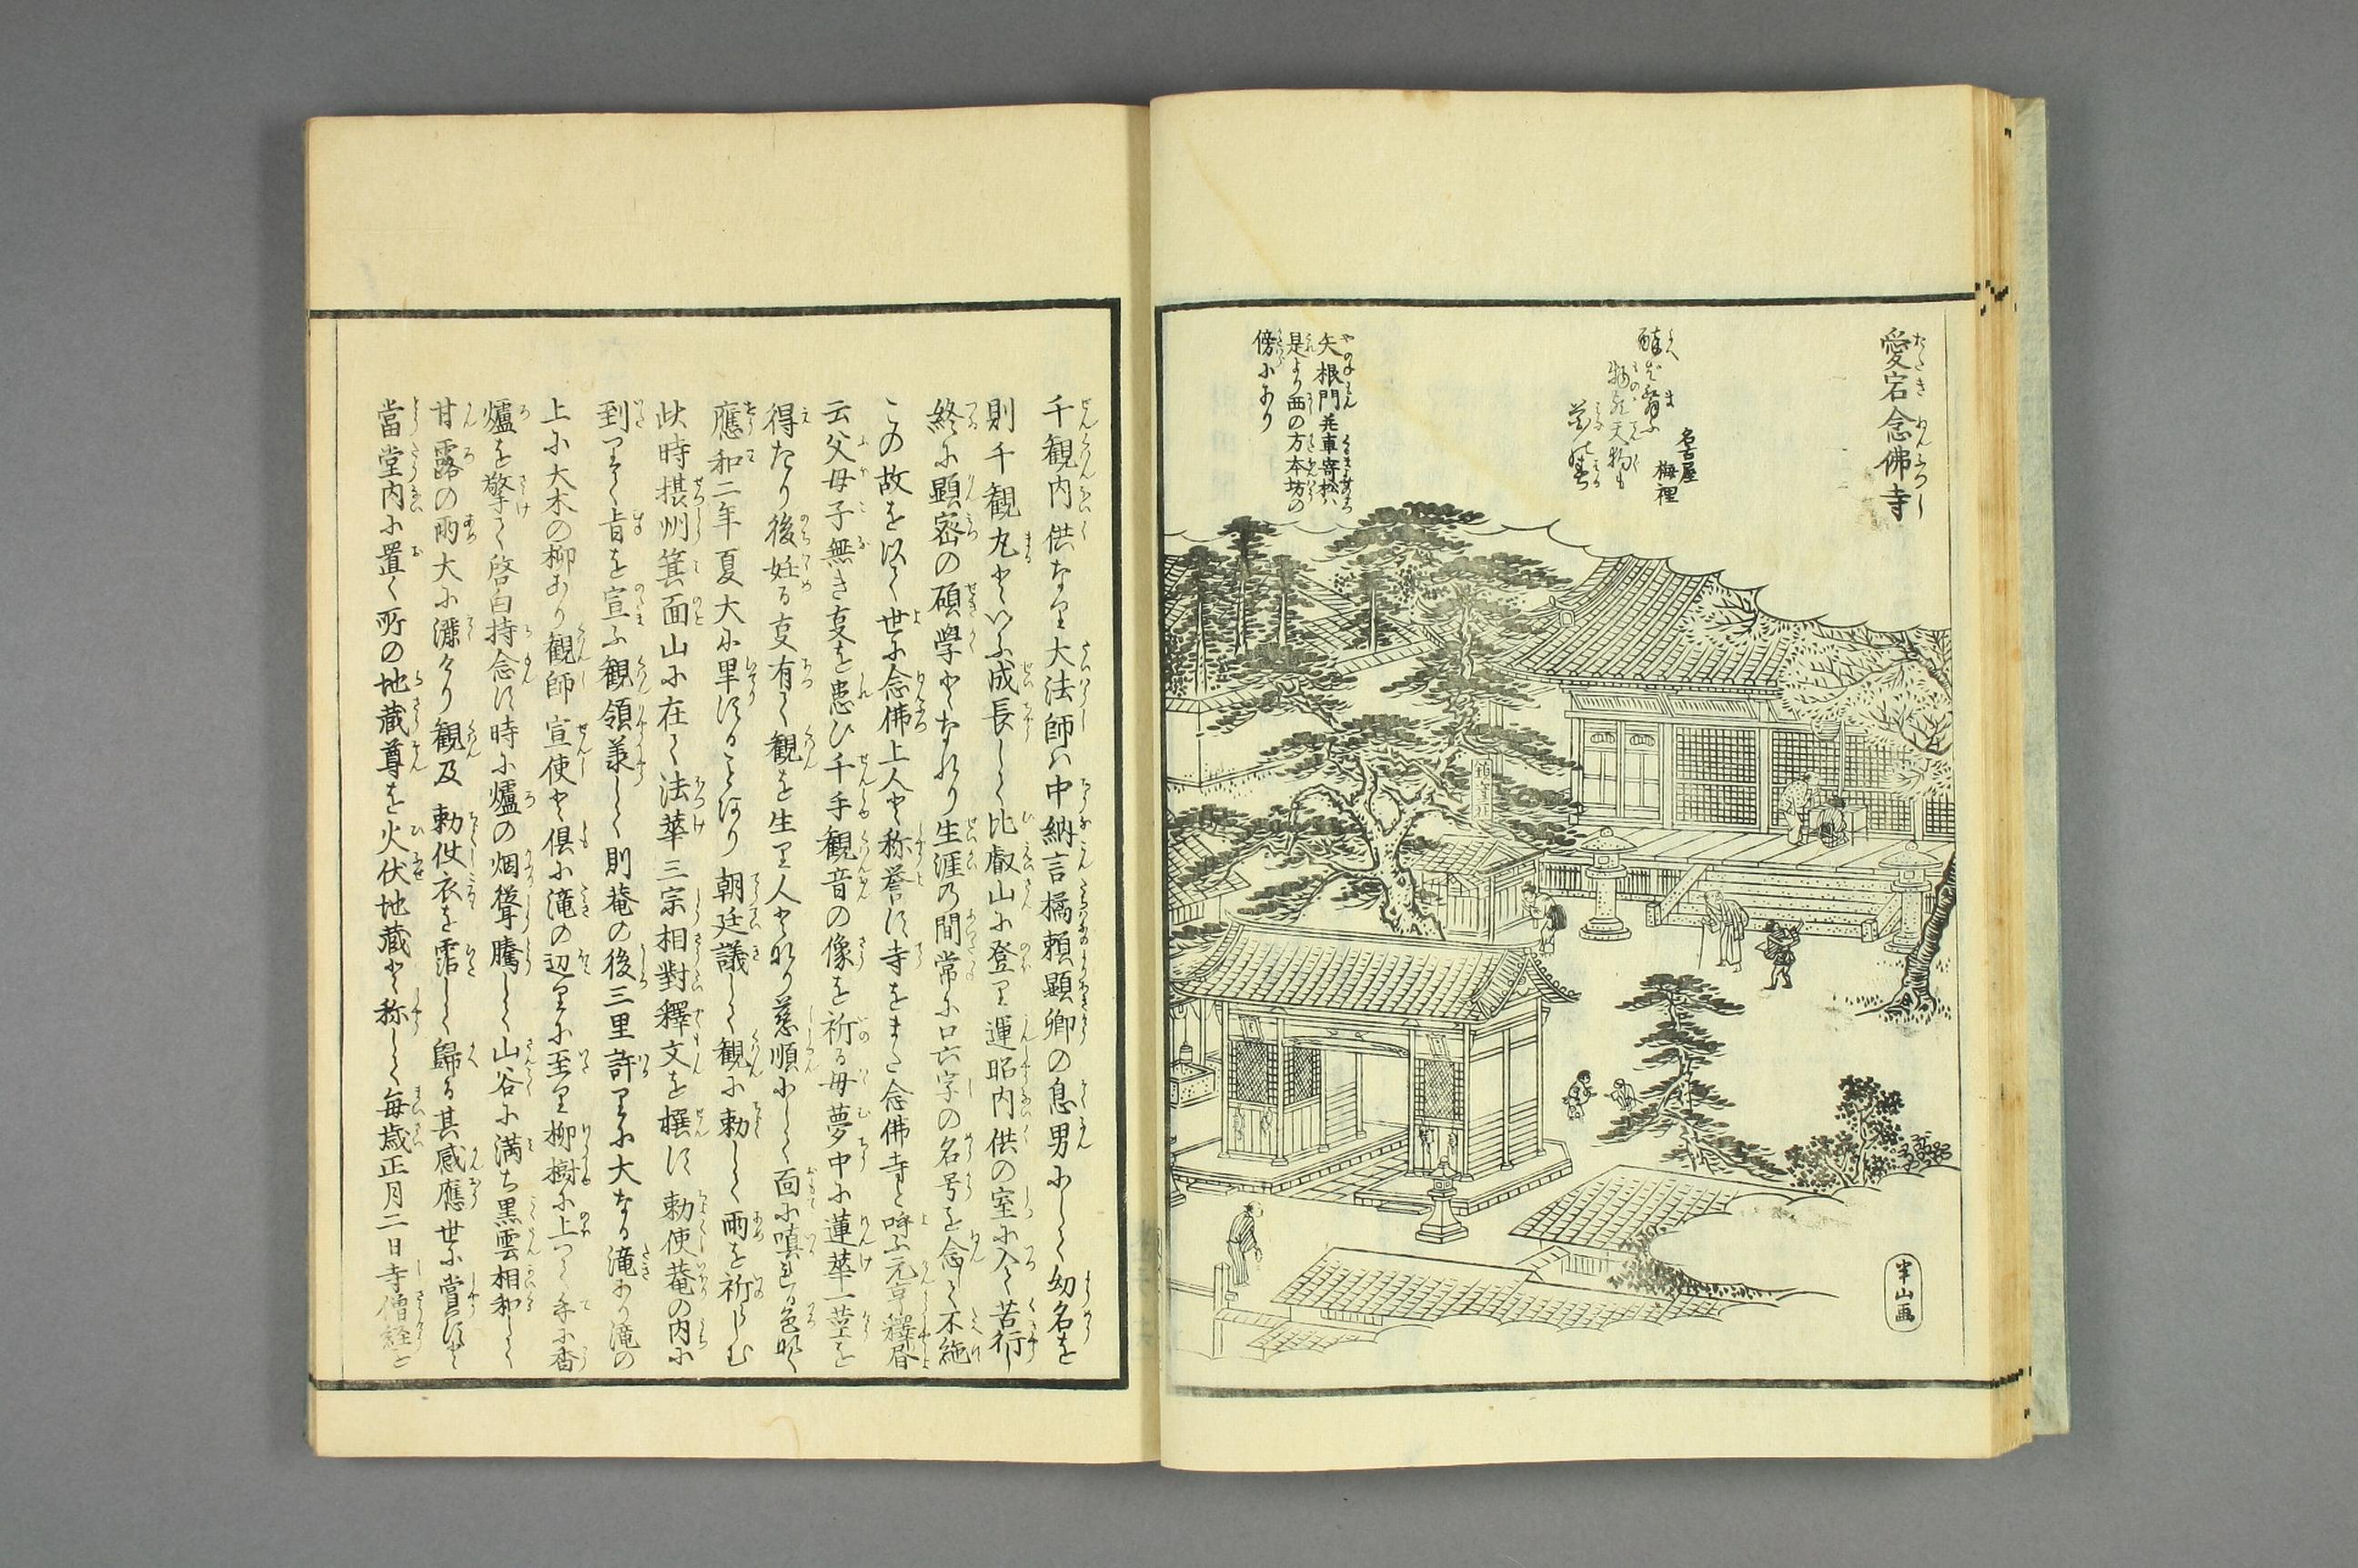 愛宕念佛寺
名古屋
梅裡
矢根門并車寄松ハ
是より西の方本坊の
傍にあり
半山画
千観内供なり大法師ハ中納言橘頼顕卿の息男にして幼名を
則千観丸といふ成長して比叡山に登り運昭内供の室に入て苦行し
終に顕密の碩學となれり生涯の間常に口六字の名号を念して不絶
この故を以て世に念佛上人と称誉す寺をまた念佛寺と呼ふ元亨釋書
云父母子無き事を患ひ千手観音の像を祈る母夢中に蓮華一莖を
得たり後妊る事有て観を生り人となり慈順にして面に嗔れる色なく
應和二年夏大に旱することあり朝廷議して観に勅して雨を祈らしむ
此時摂州箕面山に在て法華三宗相對釋文を撰す勅使菴の内に
到りて旨を宣ふ観領羕して則菴の後三里許りに大なる滝あり滝の
上に大木の柳あり観師宣使と倶に滝の辺りに至り柳樹に上つて手に香
爐を擎て啓白持念す時に爐の烟聳騰して山谷に満ち黒雲相和して
甘露の雨大に灑けり観及勅使衣を霑して歸る其感應世に賞すと
當堂内に置く所の地蔵尊を火伏地蔵と称して毎歳正月二日寺僧経を